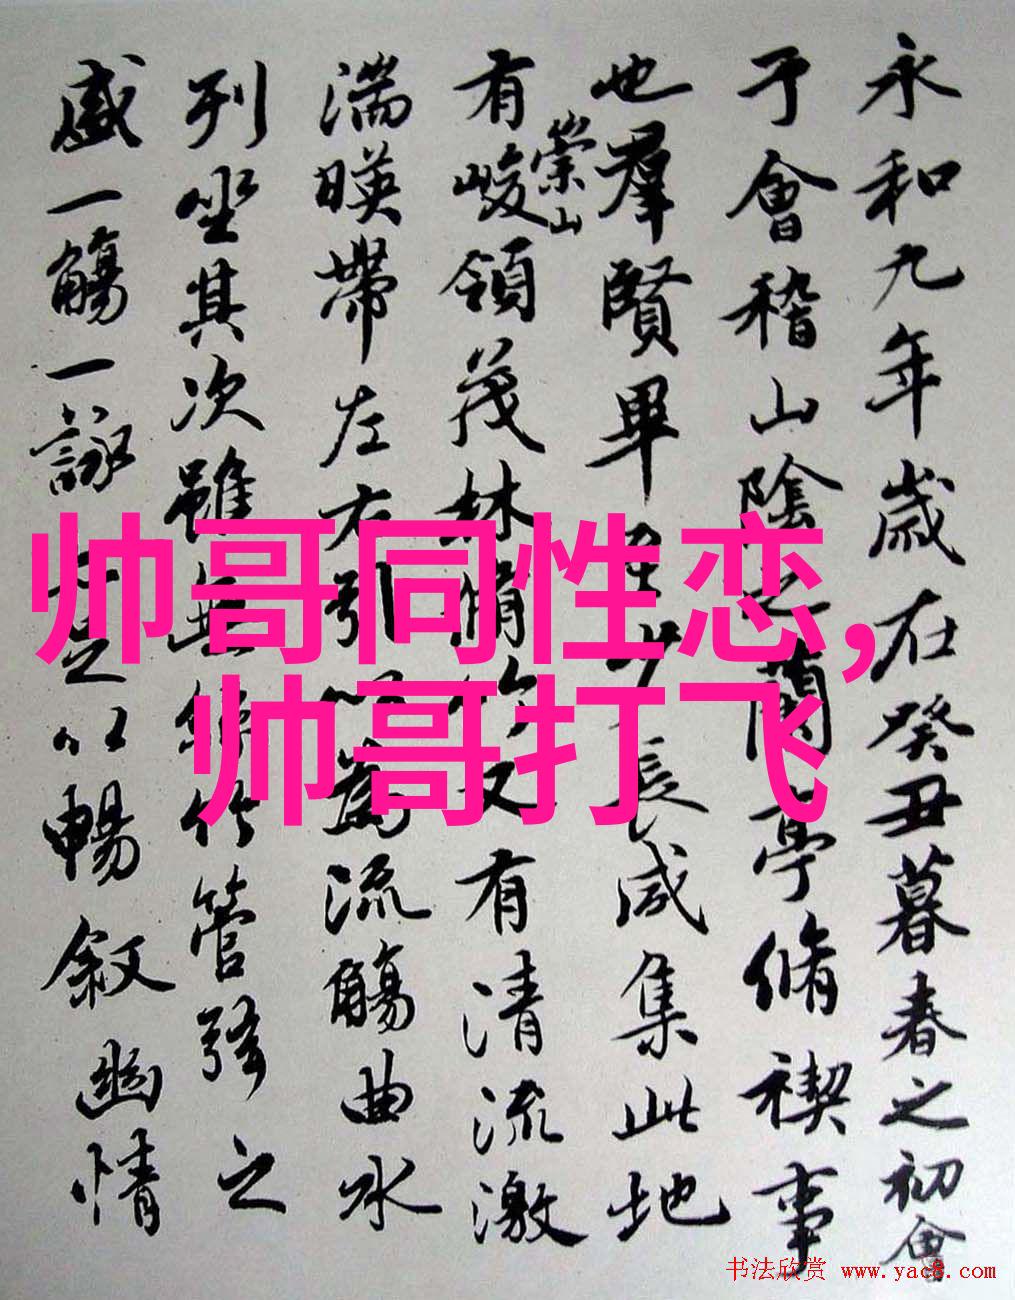 永和九年歲在癸丑暮春之初會
于會稽山陰之蘭亭脩禊事
也羣賢畢至少長咸集此地
有崇山峻領茂林脩竹又有清流激
湍暎帶左右引以為流觴曲水
列坐其次雖無絲竹管弦之
盛一觴一詠足以暢敘幽情
帅哥同性恋,
帅哥打飞
书法欣赏 www.yac8.com